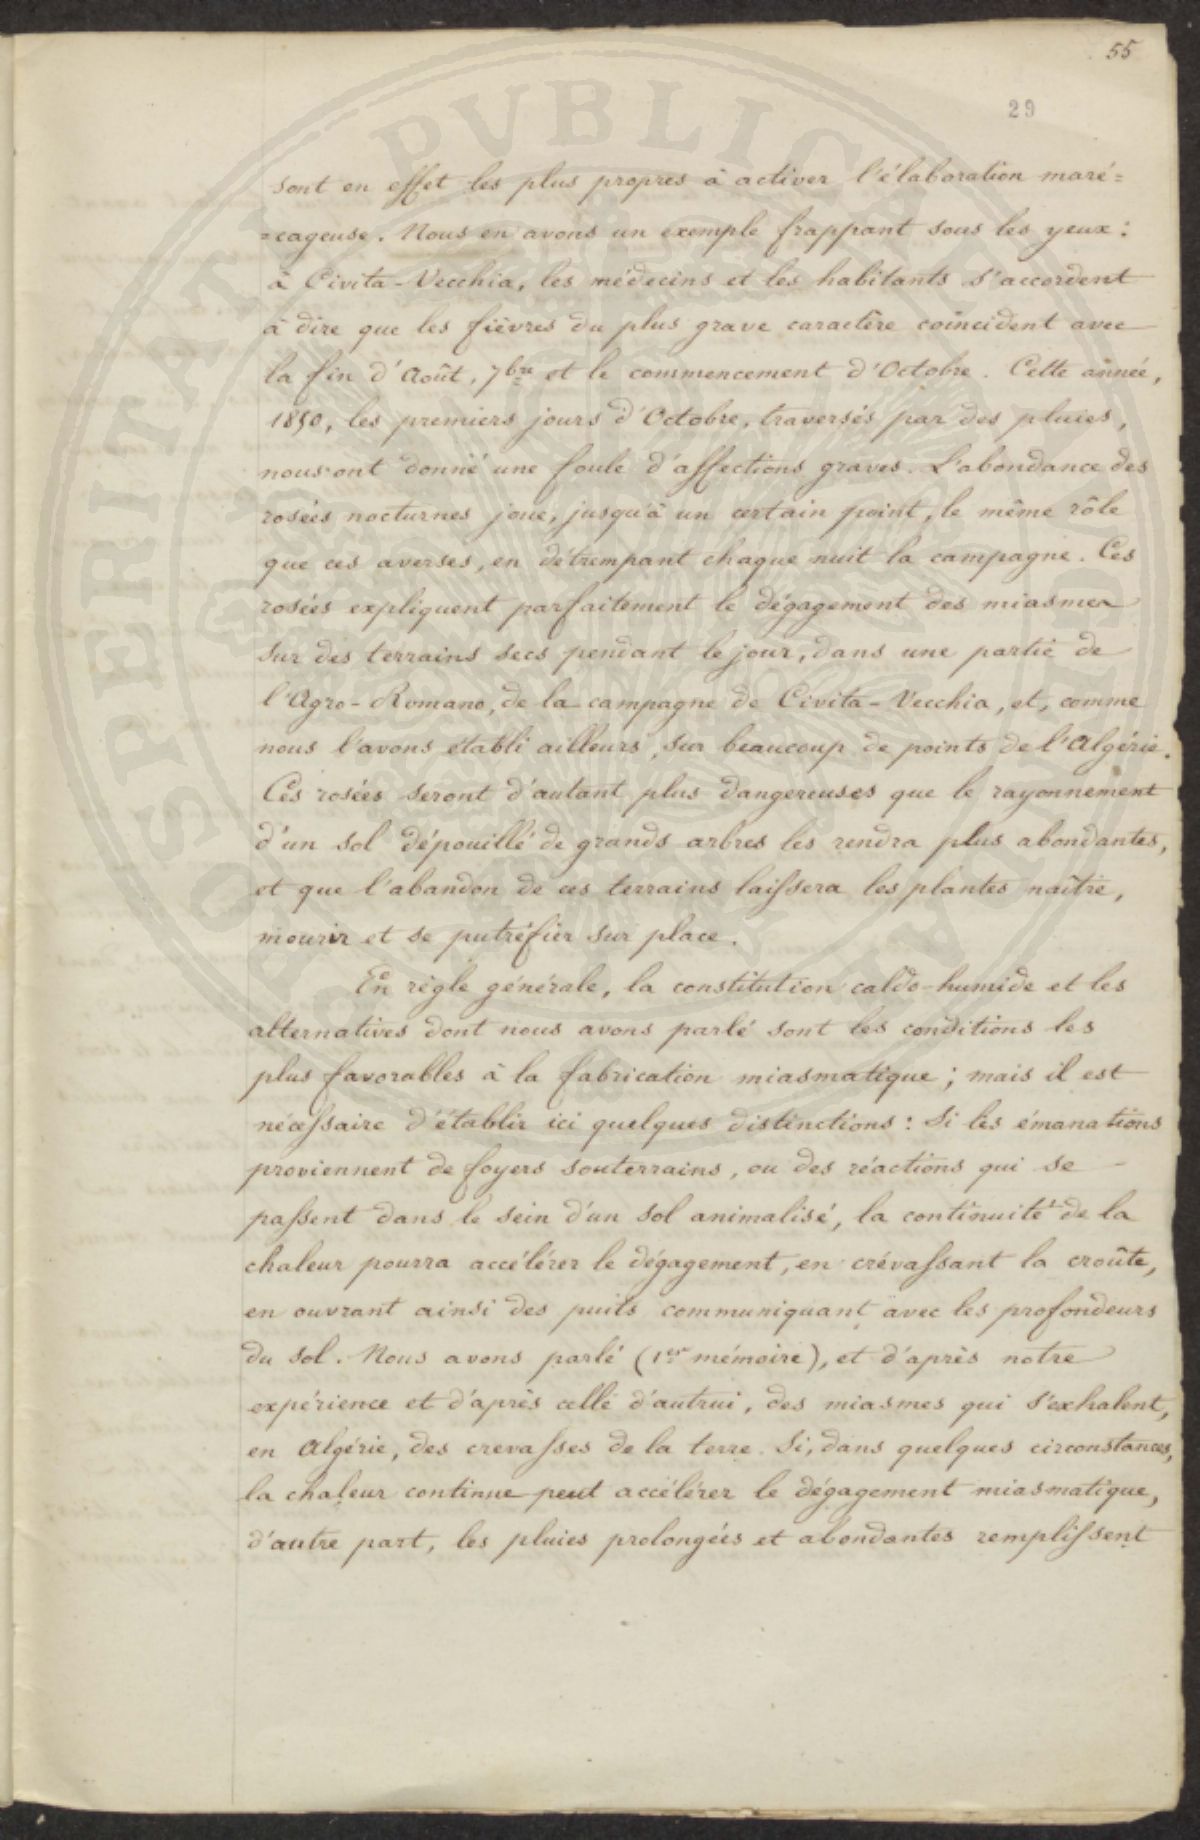 55
29
sont en effet les plus propres à activer l'élaboration maré=
=cageuse. Nous en avons un exemple frappant sous les yeux :
à Civita-Vecchia, les médecins et les habitants s'accordent
à dire que les fièvres du plus grave caractère coïncident avec
la fin d'Août, 7bre et le commencement d'Octobre. Cette année,
1850, les premiers jours d'Octobre, traversés par des pluies,
nous ont donné une foule d'affections graves. L'abondance des
rosées nocturnes joue, jusqu'à un certain point, le même rôle
que ces averses, en détrempant chaque nuit la campagne. Ces
rosées expliquent parfaitement le dégagement des miasmes
sur des terrains secs pendant le jour, dans une partie de
l'Agro-Romano, de la campagne de Civita-Vecchia, et, comme
nous l'avons établi ailleurs, sur beaucoup de points de l'Algérie.
Ces rosées seront d'autant plus dangereuses que le rayonnement
d'un sol dépouillé de grands arbres les rendra plus abondantes,
et que l'abandon de ces terrains laissera les plantes naître,
mourir et se putréfier sur place.
En règle générale, la constitution caldo-humide et les
alternatives dont nous avons parlé sont les conditions les
plus favorables à la fabrication miasmatique ; mais il est
nécessaire d'établir ici quelques distinctions : Si les émanations
proviennent de foyers souterrains, ou des réactions qui se
passent dans le sein d'un sol animalisé, la continuité de la
chaleur pourra accélérer le dégagement, en crévassant la croûte,
en ouvrant ainsi des puits communiquant avec les profondeurs
du sol. Nous avons parlé (1er mémoire), et d'après notre
expérience et d'après celle d'autrui, des miasmes qui s'exhalent,
en Algérie, des crevasses de la terre. Si, dans quelques circonstances,
la chaleur continue peut accélérer le dégagement miasmatique,
d'autre part, les pluies prolongées et abondantes remplissent